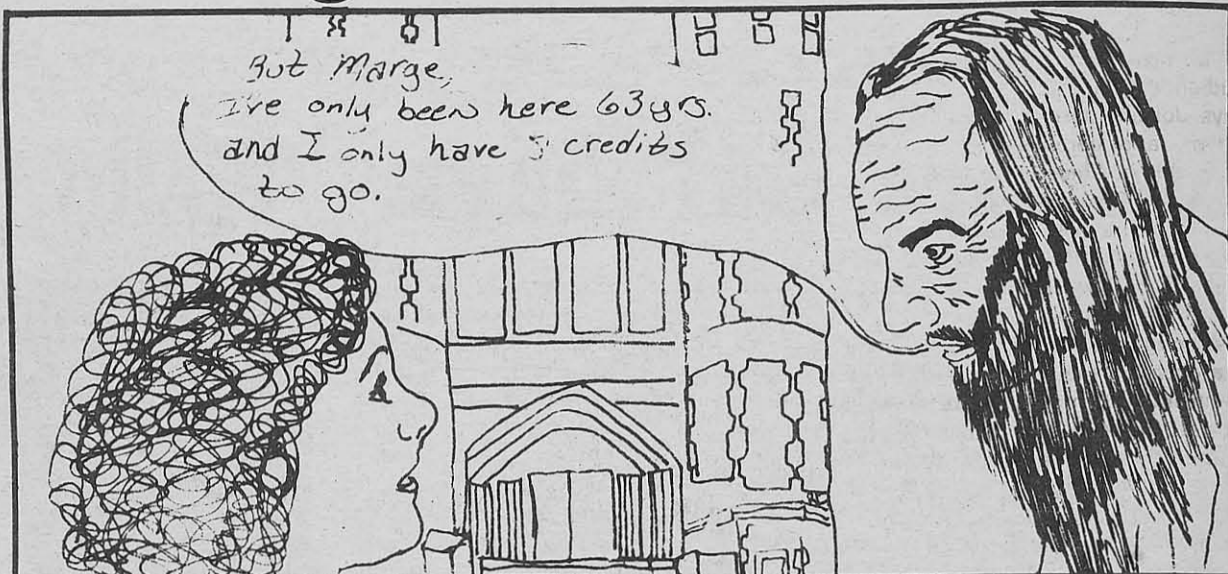 But Marge,
I've only been here 63 yrs.
and I only have credits
to go.